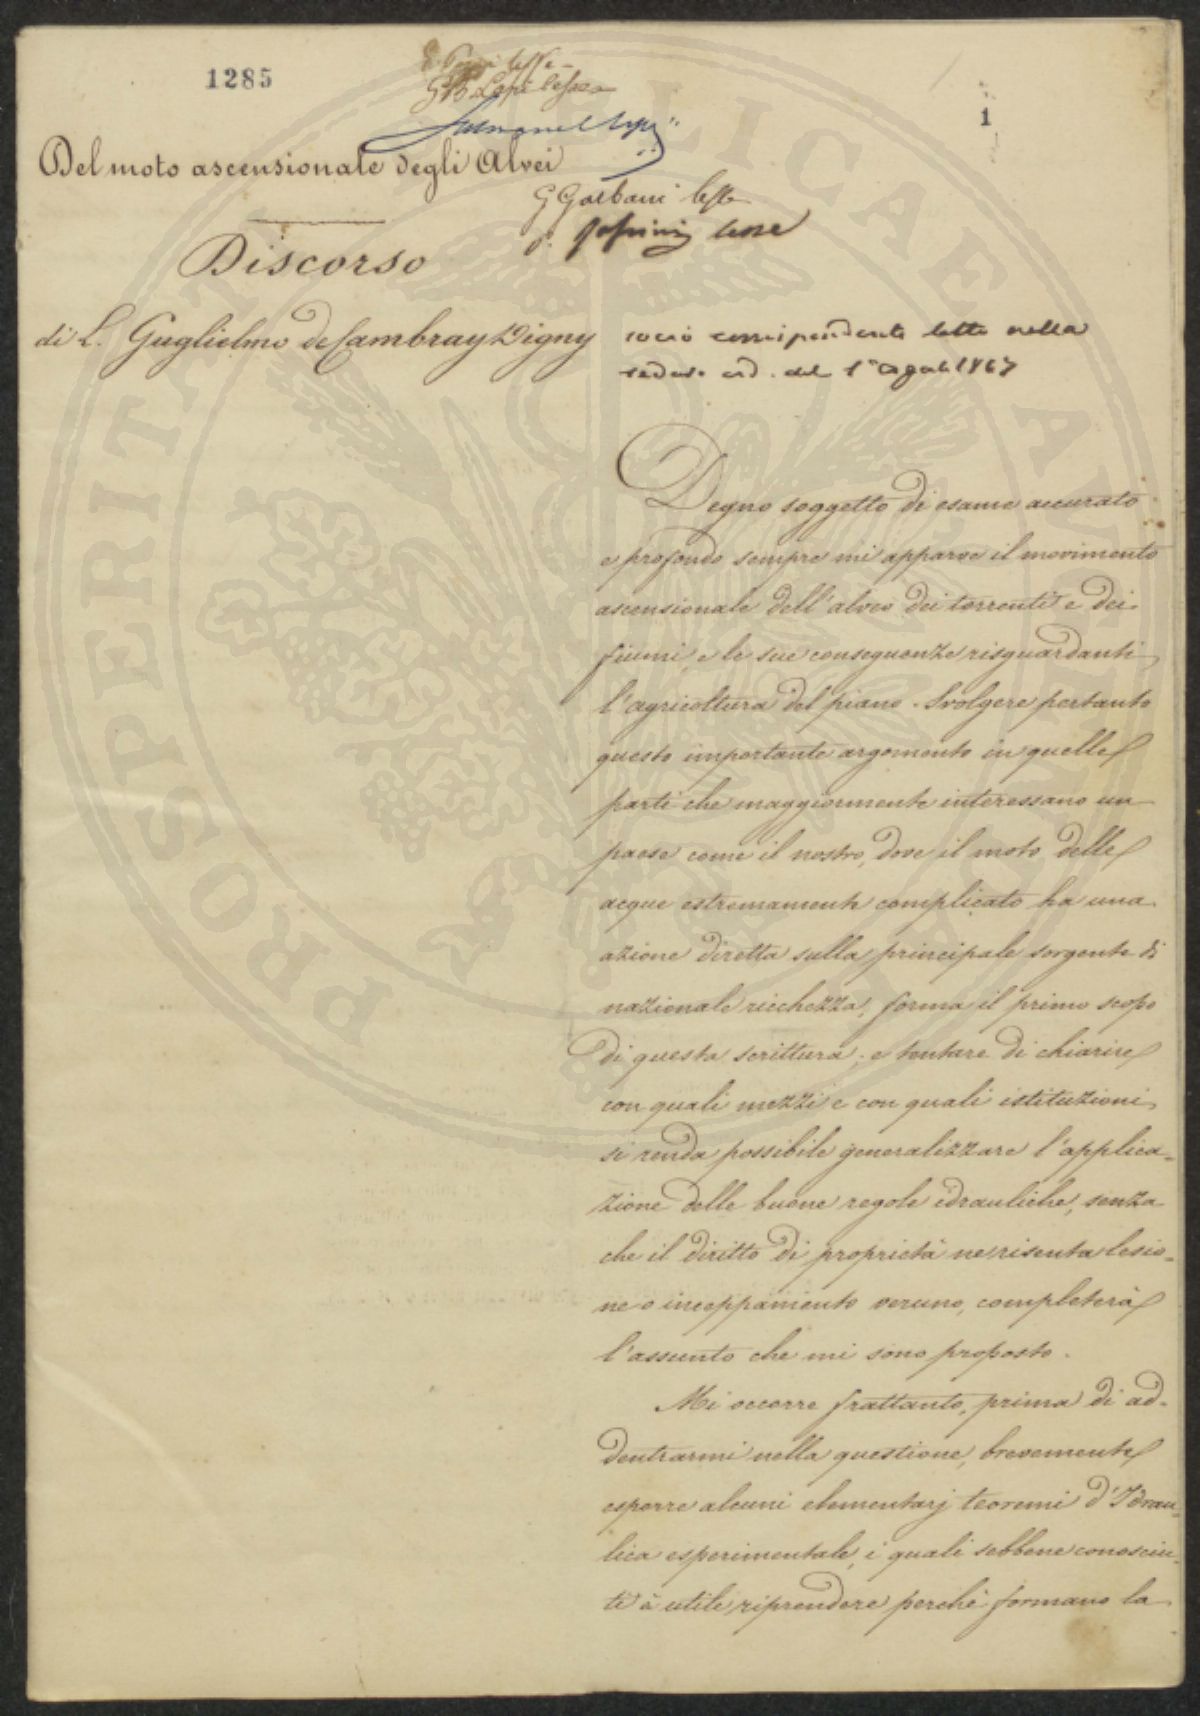 1285
1
G. B. Lapi lesse
Del moto ascensionale degli Alvei
G Garbani lesse
lesse
Discorso
di L. Guglielmo de Cambray Digny socio corrispondente letto nella
seduta ord. del 1º Agosto 1867
Degno soggetto di esame accurato
e profondo sempre mi apparve il movimento
ascensionale dell'alveo dei torrenti e dei
fiumi, e le sue conseguenze risguardanti
l'agricoltura del piano. Svolgere pertanto
questo importante argomento in quelle
parti che maggiormente interessano un
paese come il nostro, dove il moto delle
acque estremamente complicato ha una
azione diretta sulla principale sorgente di
nazionale ricchezza, forma il primo scopo
di questa scrittura; e tentare di chiarire
con quali mezzi e con quali istituzioni
si renda possibile generalizzare l'applica-
zione delle buone regole idrauliche, senza
che il diritto di proprietà ne risenta lesio-
ne o inceppamento veruno, completerà
l'assunto che mi sono proposto.
Mi occorre frattanto, prima di ad-
dentrarmi nella questione, brevemente
esporre alcuni elementarj teoremi d'Idrau-
lica esperimentale, i quali sebbene conosciu-
ti è utile riprendere perchè formano la
PROSPERITATI PUBLICAE AUGENDAE